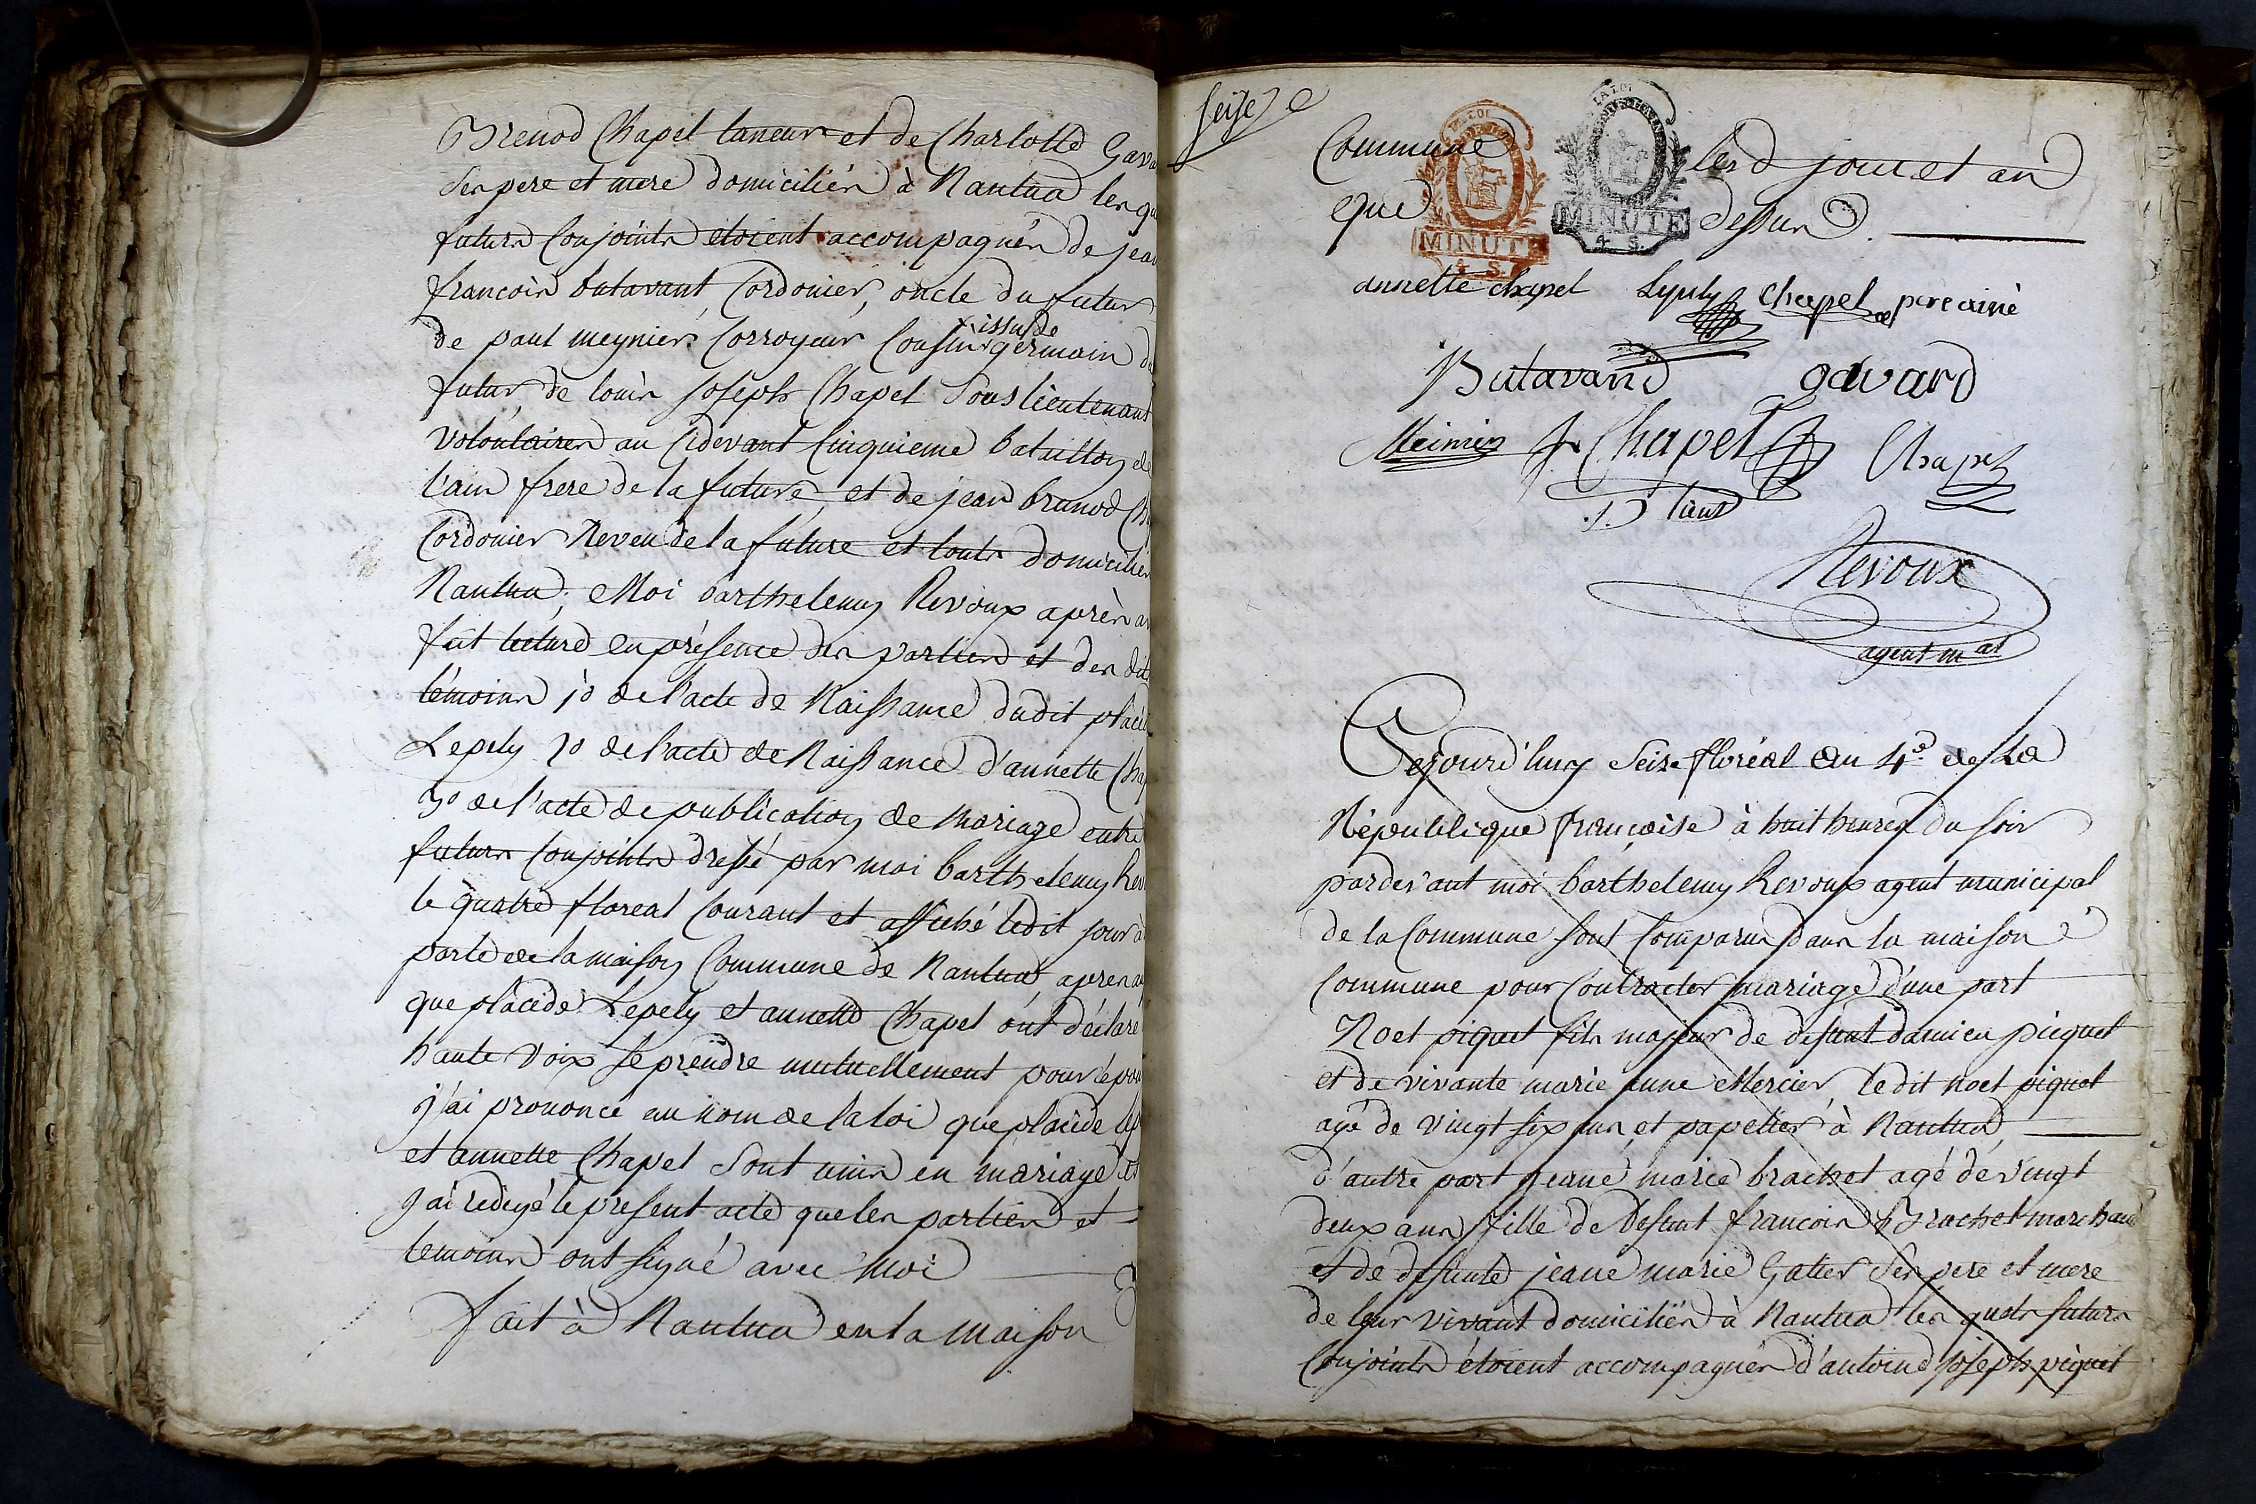 Brenod Chapel taneur et de Charlotte Gava
Ses pere et mere domiciliés à Nantua les qu
futurs Conjoints etoient accompagnés de jean
francois batavant, Cordonier, oncle du futur
issu de
de paul meynier Corroyeur Cousin germain du
futur, de louis joseph Chapel Sous lieutenant
volontaires au Cidevant Cinquieme bataillon de
l'ain frere de la future, et de jean brunod Ch
Cordonier Neveu de la future et touts domiciliés
Nantua; Moi barthelemy Revoux après av
fait lecture en présence des parties et des dits
témoins 1o de l'acte de Naissance dudit placid
Lepely 2o de l'acte de Naissance d'annette Chap
3o de l'acte de publication de Mariage entre
futurs Conjoints dressé par moi barthelemy Rev
le quatre floreal Courant et affiché ledit jour à
porte de la maison Commune de Nantua apres av
que placide Lepely et annette Chapel ont déclaré
haute voix se prendre mutuellement pour épou
j'ai prononcé au nom de la loi que placide Lep
et annette Chapel Sont unis en mariage et
j'ai redigé le present acte que les parties et
temoins ont signé avec Moi
fait à Nantua en la maison
seize
Commune les jour et an
que dessus.
LA LOI
MINUTE
4. S.
LA LOI
MINUTE
4. S.
annette chapel Lepely Chapel pere ainé
Batavand gavard
Meinier Chapel Chapel
S. lieut
Revoux
agent mal
Cejourd'huy Seize floréal an 4e. de La
République françoise à huit heures du soir
pardevant moi barthelemy Revoux agent municipal
de la Commune sont Comparus dans la maison
Commune pour Contracter mariage d'une part
Noel piquet fils majeur de defunt damien picquet
et de vivante marie anne Mercier, ledit noel piquet
agé de vingt six ans, et papetier à Nantua,
d'autre part jeane marie brachet agé de vingt
deux ans fille de defunt francois Brachet marchand
et de defunte jeane marie Gatier Ses pere et mere
de leur vivant domiciliés à Nantua les quels futurs
Conjoints étoient accompagnés d'antoine joseph piquet